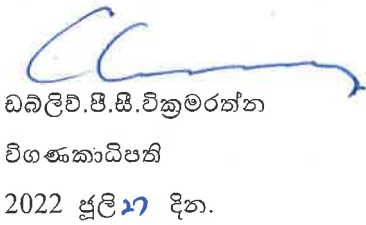 ඩබ්ලිව්.පී.සී.වික්‍රමරත්න
විගණකාධිපති
2022 ජූලි 27 දින.